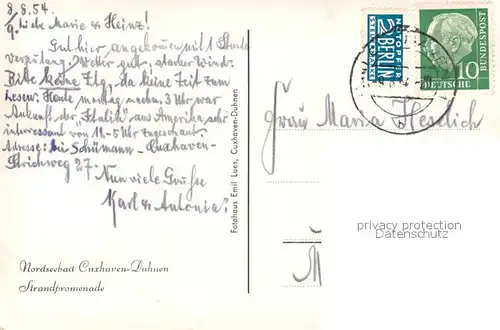 8.8.54.
9. Liebe Marie u. Heinz!
Gut hier angekommen mit 1 Stunde
Verspätung. Wetter gut, starker Wind.
Bitte keine Ztg, da keine Zeit zum
Lesen. Heute montag, nachm. 3 Uhr war
Ankunft der "Italia" aus Amerika, sehr
interessant von 11-5 Uhr zugeschaut.
Adresse: bei Schümann - Cuxhaven-
Strichweg 27. Nun viele Grüsse
Karl u. Antonia
Nordseebad Cuxhaven-Duhnen
Strandpromenade
Fotohaus Emil Lues, Cuxhaven-Duhnen
NOTOPFER
2 BERLIN
STEUERMARKE
DEUTSCHE
BUNDESPOST
10
Frau Maria
privacy protection
Datenschutz